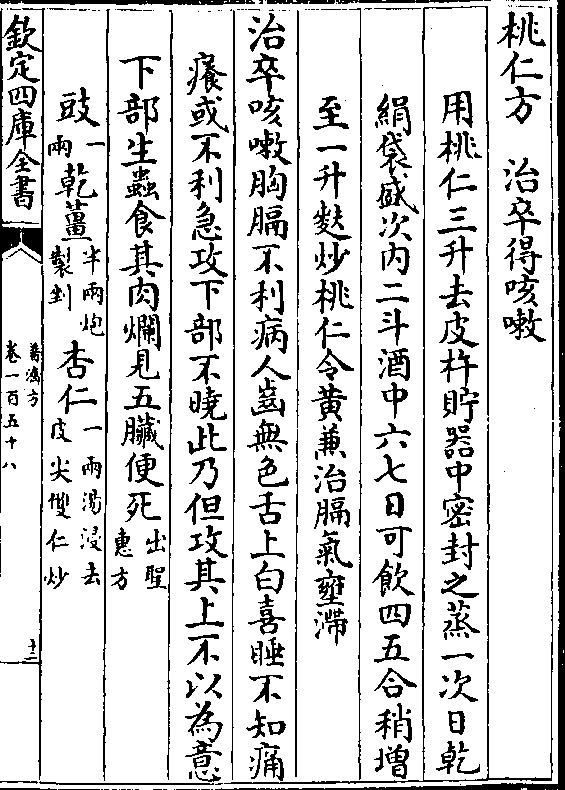 桃仁方　治卒得咳嗽
用桃仁三升去皮杵貯器中密封之蒸一次日乾
絹袋盛次内二斗酒中六七日可飲四五合稍增
至一升麩炒桃仁令黄兼治膈氣壅滯
治卒咳嗽胸膈不利病人齒無色舌上白喜睡不知痛
癢或不利急攻下部不曉此乃但攻其上不以為意
下部生蟲食其肉爛見五臟便死出聖惠方
豉一兩乾薑半兩炮製剉杏仁一兩湯浸去皮尖雙仁炒
欽定四庫全書
普濟方
卷一百五十八
十三